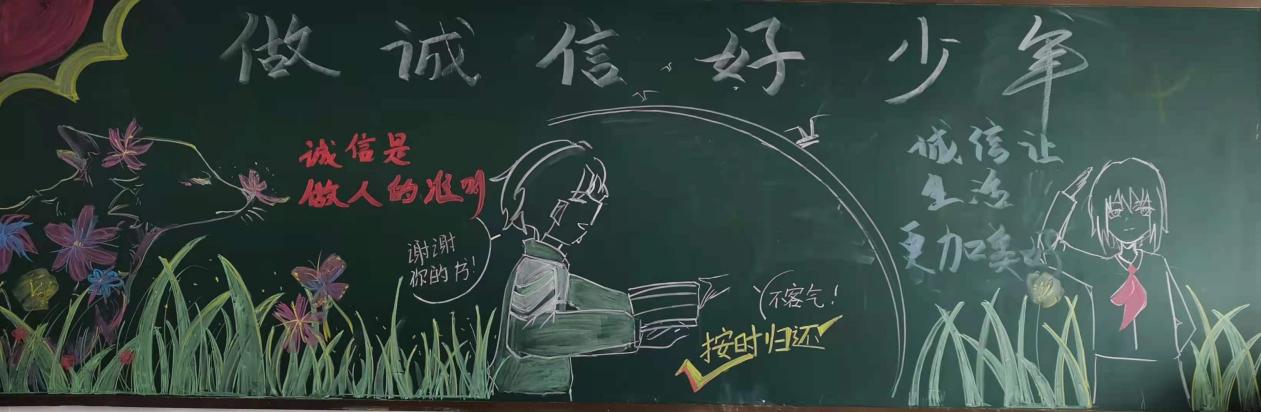 做诚信好少年
诚信是
做人的准则
谢谢
你的书!
不客气!
按时归还
诚信让
生活
更加美好